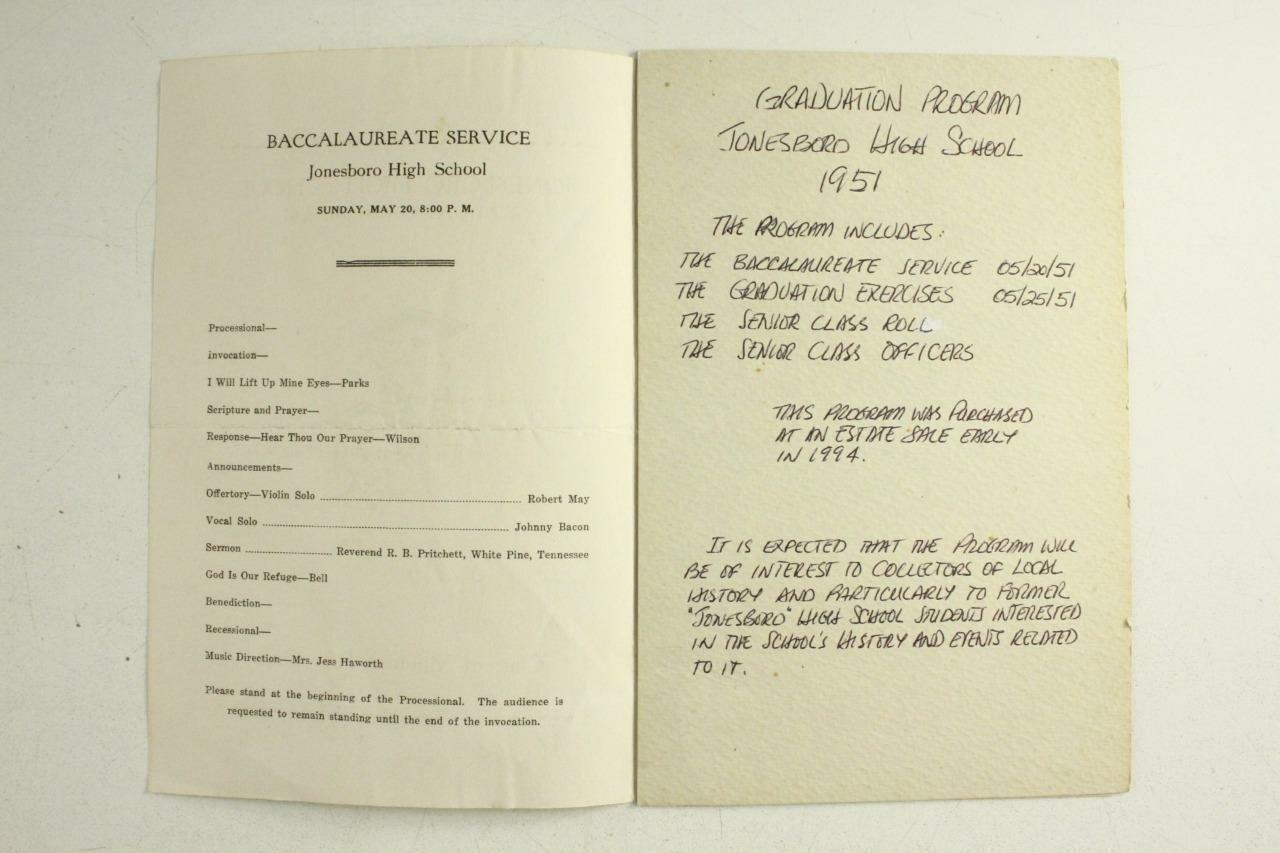 BACCALAUREATE SERVICE
Jonesboro High School
SUNDAY, MAY 20, 8:00 P. M.
Processional—
invocation—
I Will Lift Up Mine Eyes—Parks
Scripture and Prayer—
Response—Hear Thou Our Prayer—Wilson
Announcements—
Offertory—Violin Solo ........ Robert May
Vocal Solo ........ Johnny Bacon
Sermon ........ Reverend R. B. Pritchett, White Pine, Tennessee
God Is Our Refuge—Bell
Benediction—
Recessional—
Music Direction—Mrs. Jess Haworth
Please stand at the beginning of the Processional. The audience is
requested to remain standing until the end of the invocation.
GRADUATION PROGRAM
JONESBORO HIGH SCHOOL
1951
THE PROGRAM INCLUDES:
THE BACCALAUREATE SERVICE 05/20/51
THE GRADUATION EXERCISES 05/25/51
THE SENIOR CLASS ROLL
THE SENIOR CLASS OFFICERS
THIS PROGRAM WAS PURCHASED
AT AN ESTATE SALE EARLY
IN 1994.
IT IS EXPECTED THAT THE PROGRAM WILL
BE OF INTEREST TO COLLECTORS OF LOCAL
HISTORY AND PARTICULARLY TO FORMER
"JONESBORO" HIGH SCHOOL STUDENTS INTERESTED
IN THE SCHOOL'S HISTORY AND EVENTS RELATED
TO IT.